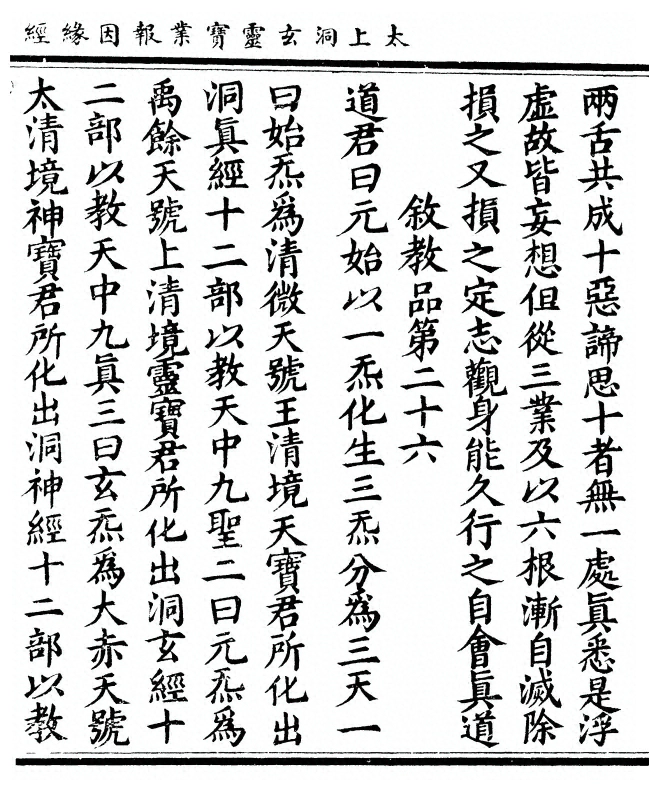 太上洞玄靈寶業報因緣經
兩舌共成十惡諦思十者無一處眞悉是浮
虛故皆妄想但從三業及以六根漸自滅除
損之又損之定志觀身能久行之自會眞道
敘教品第二十六
道君曰元始以一炁化生三炁分爲三天一
曰始炁爲清微天號王清境天寶君所化出
洞眞經十二部以教天中九聖二曰元炁爲
禹餘天號上清境靈寶君所化出洞玄經十
二部以教天中九眞三曰玄炁爲大赤天號
太清境神寶君所化出洞神經十二部以教